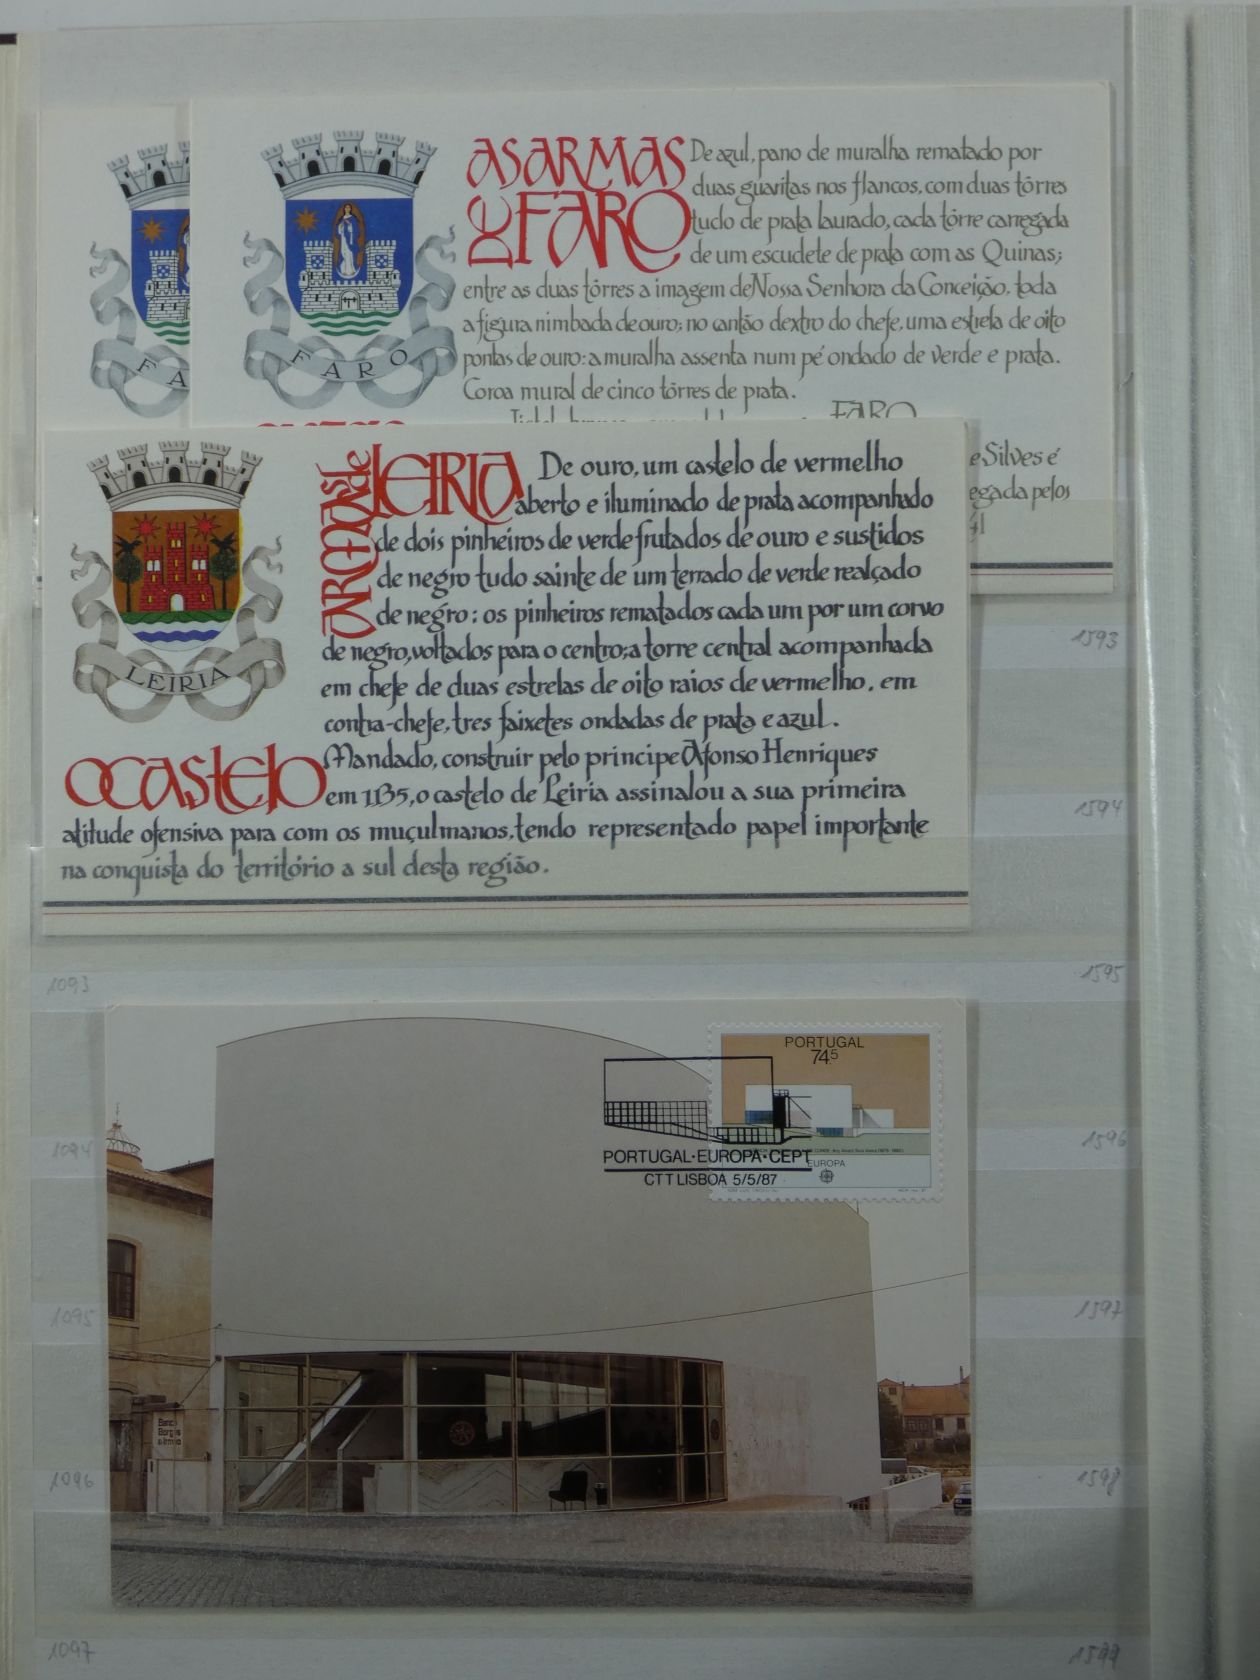 FA
FARO
AS ARMAS
DE FARO
De azul, pano de muralha rematado por
duas guaritas nos flancos, com duas tôrres
tudo de prata laurado, cada tôrre carregada
de um escudete de prata com as Quinas;
entre as duas tôrres a imagem de Nossa Senhora da Conceição, toda
a figura nimbada de ouro; no cantão dextro do chefe, uma estrela de oito
pontas de ouro: a muralha assenta num pé ondado de verde e prata.
Coroa mural de cinco tôrres de prata.
FARO
e Silves é
egada pelos
LEIRIA
ARMAS de LEIRIA
De ouro, um castelo de vermelho
aberto e iluminado de prata acompanhado
de dois pinheiros de verde frutados de ouro e sustidos
de negro tudo sainte de um terrado de verde realçado
de negro: os pinheiros rematados cada um por um corvo
de negro, voltados para o centro; a torre central acompanhada
em chefe de duas estrelas de oito raios de vermelho, em
contra-chefe, tres faixetes ondadas de prata e azul.
O Castelo
Mandado, construir pelo principe Afonso Henriques
em 1135, o castelo de Leiria assinalou a sua primeira
atitude ofensiva para com os muçulmanos, tendo representado papel importante
na conquista do território a sul desta região.
1593
1594
1093
1595
1094
1596
1095
1597
1096
1598
1097
1599
PORTUGAL
74.5
EUROPA
PORTUGAL·EUROPA·CEPT
CTT LISBOA 5/5/87
Banco
Borges
& Irmão